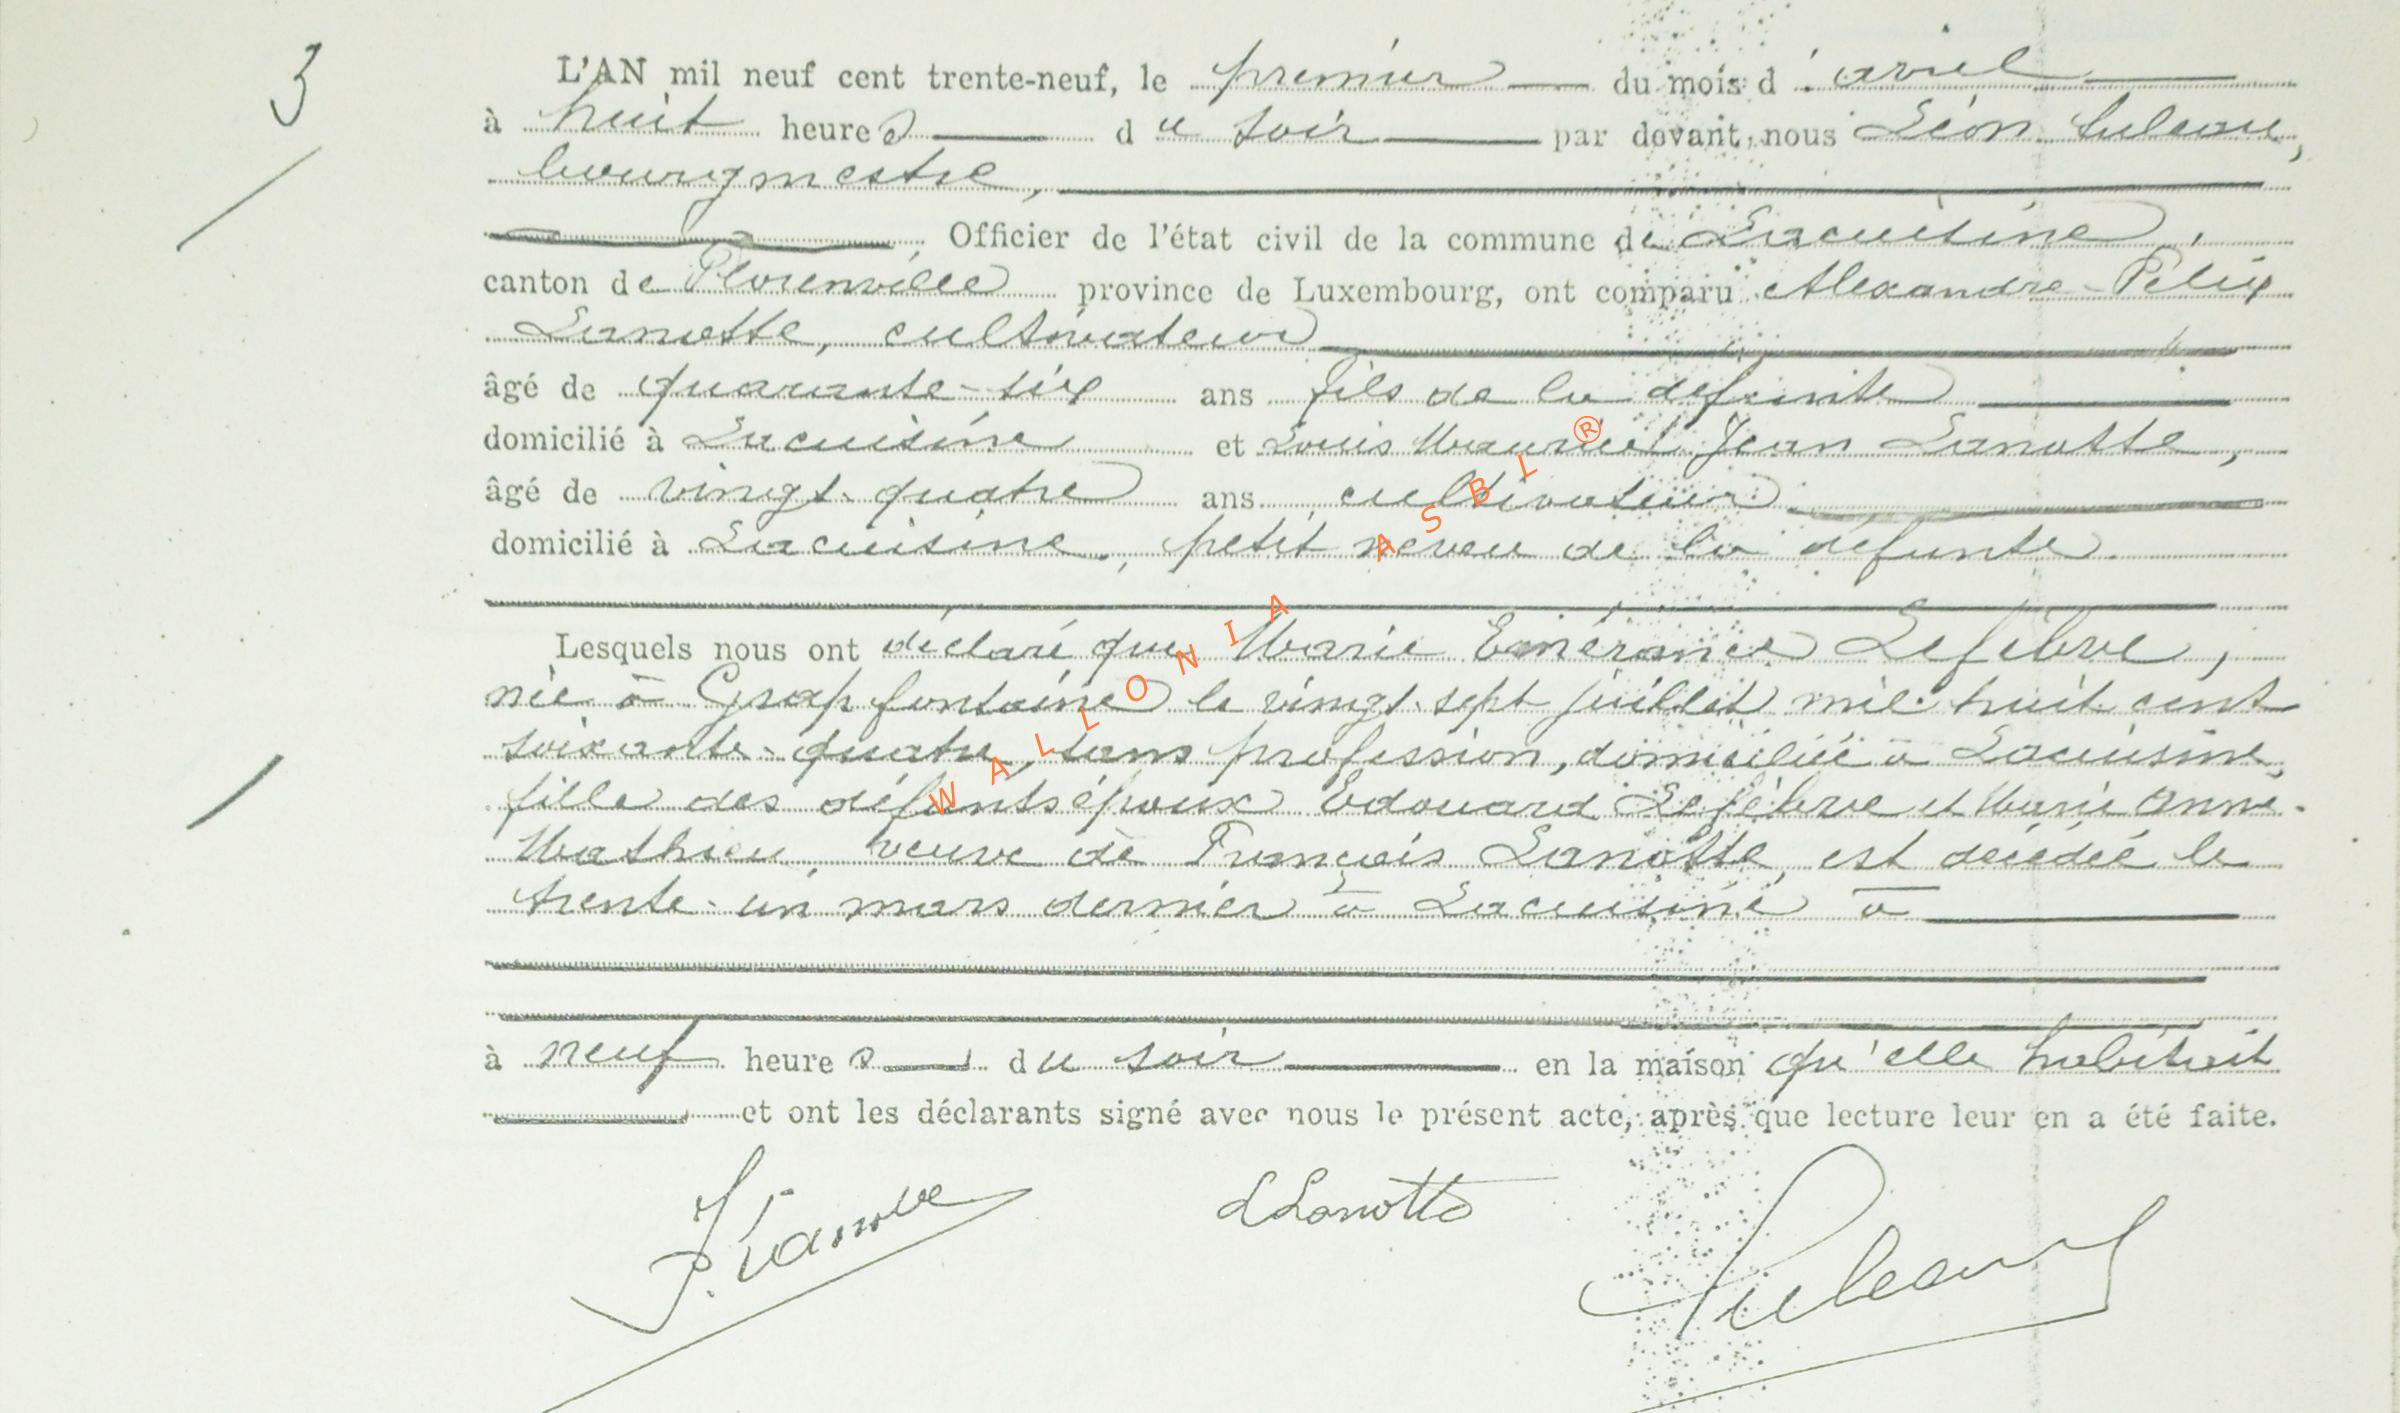 3
L'AN mil neuf cent trente-neuf, le premier du mois d'avril
à huit heures du soir par devant nous Léon
bourgmestre,
Officier de l'état civil de la commune de Lacuisine,
canton de Florenville province de Luxembourg, ont comparu Alexandre-Félix
Lanotte, cultivateur
âgé de quarante-six ans fils de la défunte
domicilié à Lacuisine et Louis Jean Lanotte,
âgé de vingt-quatre ans cultivateur
domicilié à Lacuisine, petit neveu de la défunte.
Lesquels nous ont déclaré que Marie Emérance Lefèbvre,
née à Grapfontaine le vingt-sept juillet mil huit cent
soixante-quatre, sans profession, domiciliée à Lacuisine,
fille des défunts époux Edouard Lefèbvre et Marie Anne
Mathieu, veuve de François Lanotte, est décédée le
trente-un mars dernier à Lacuisine à
à neuf heures du soir en la maison qu'elle habitait
et ont les déclarants signé avec nous le présent acte, après que lecture leur en a été faite.
LLanotte
WALLONIA ASBL ®